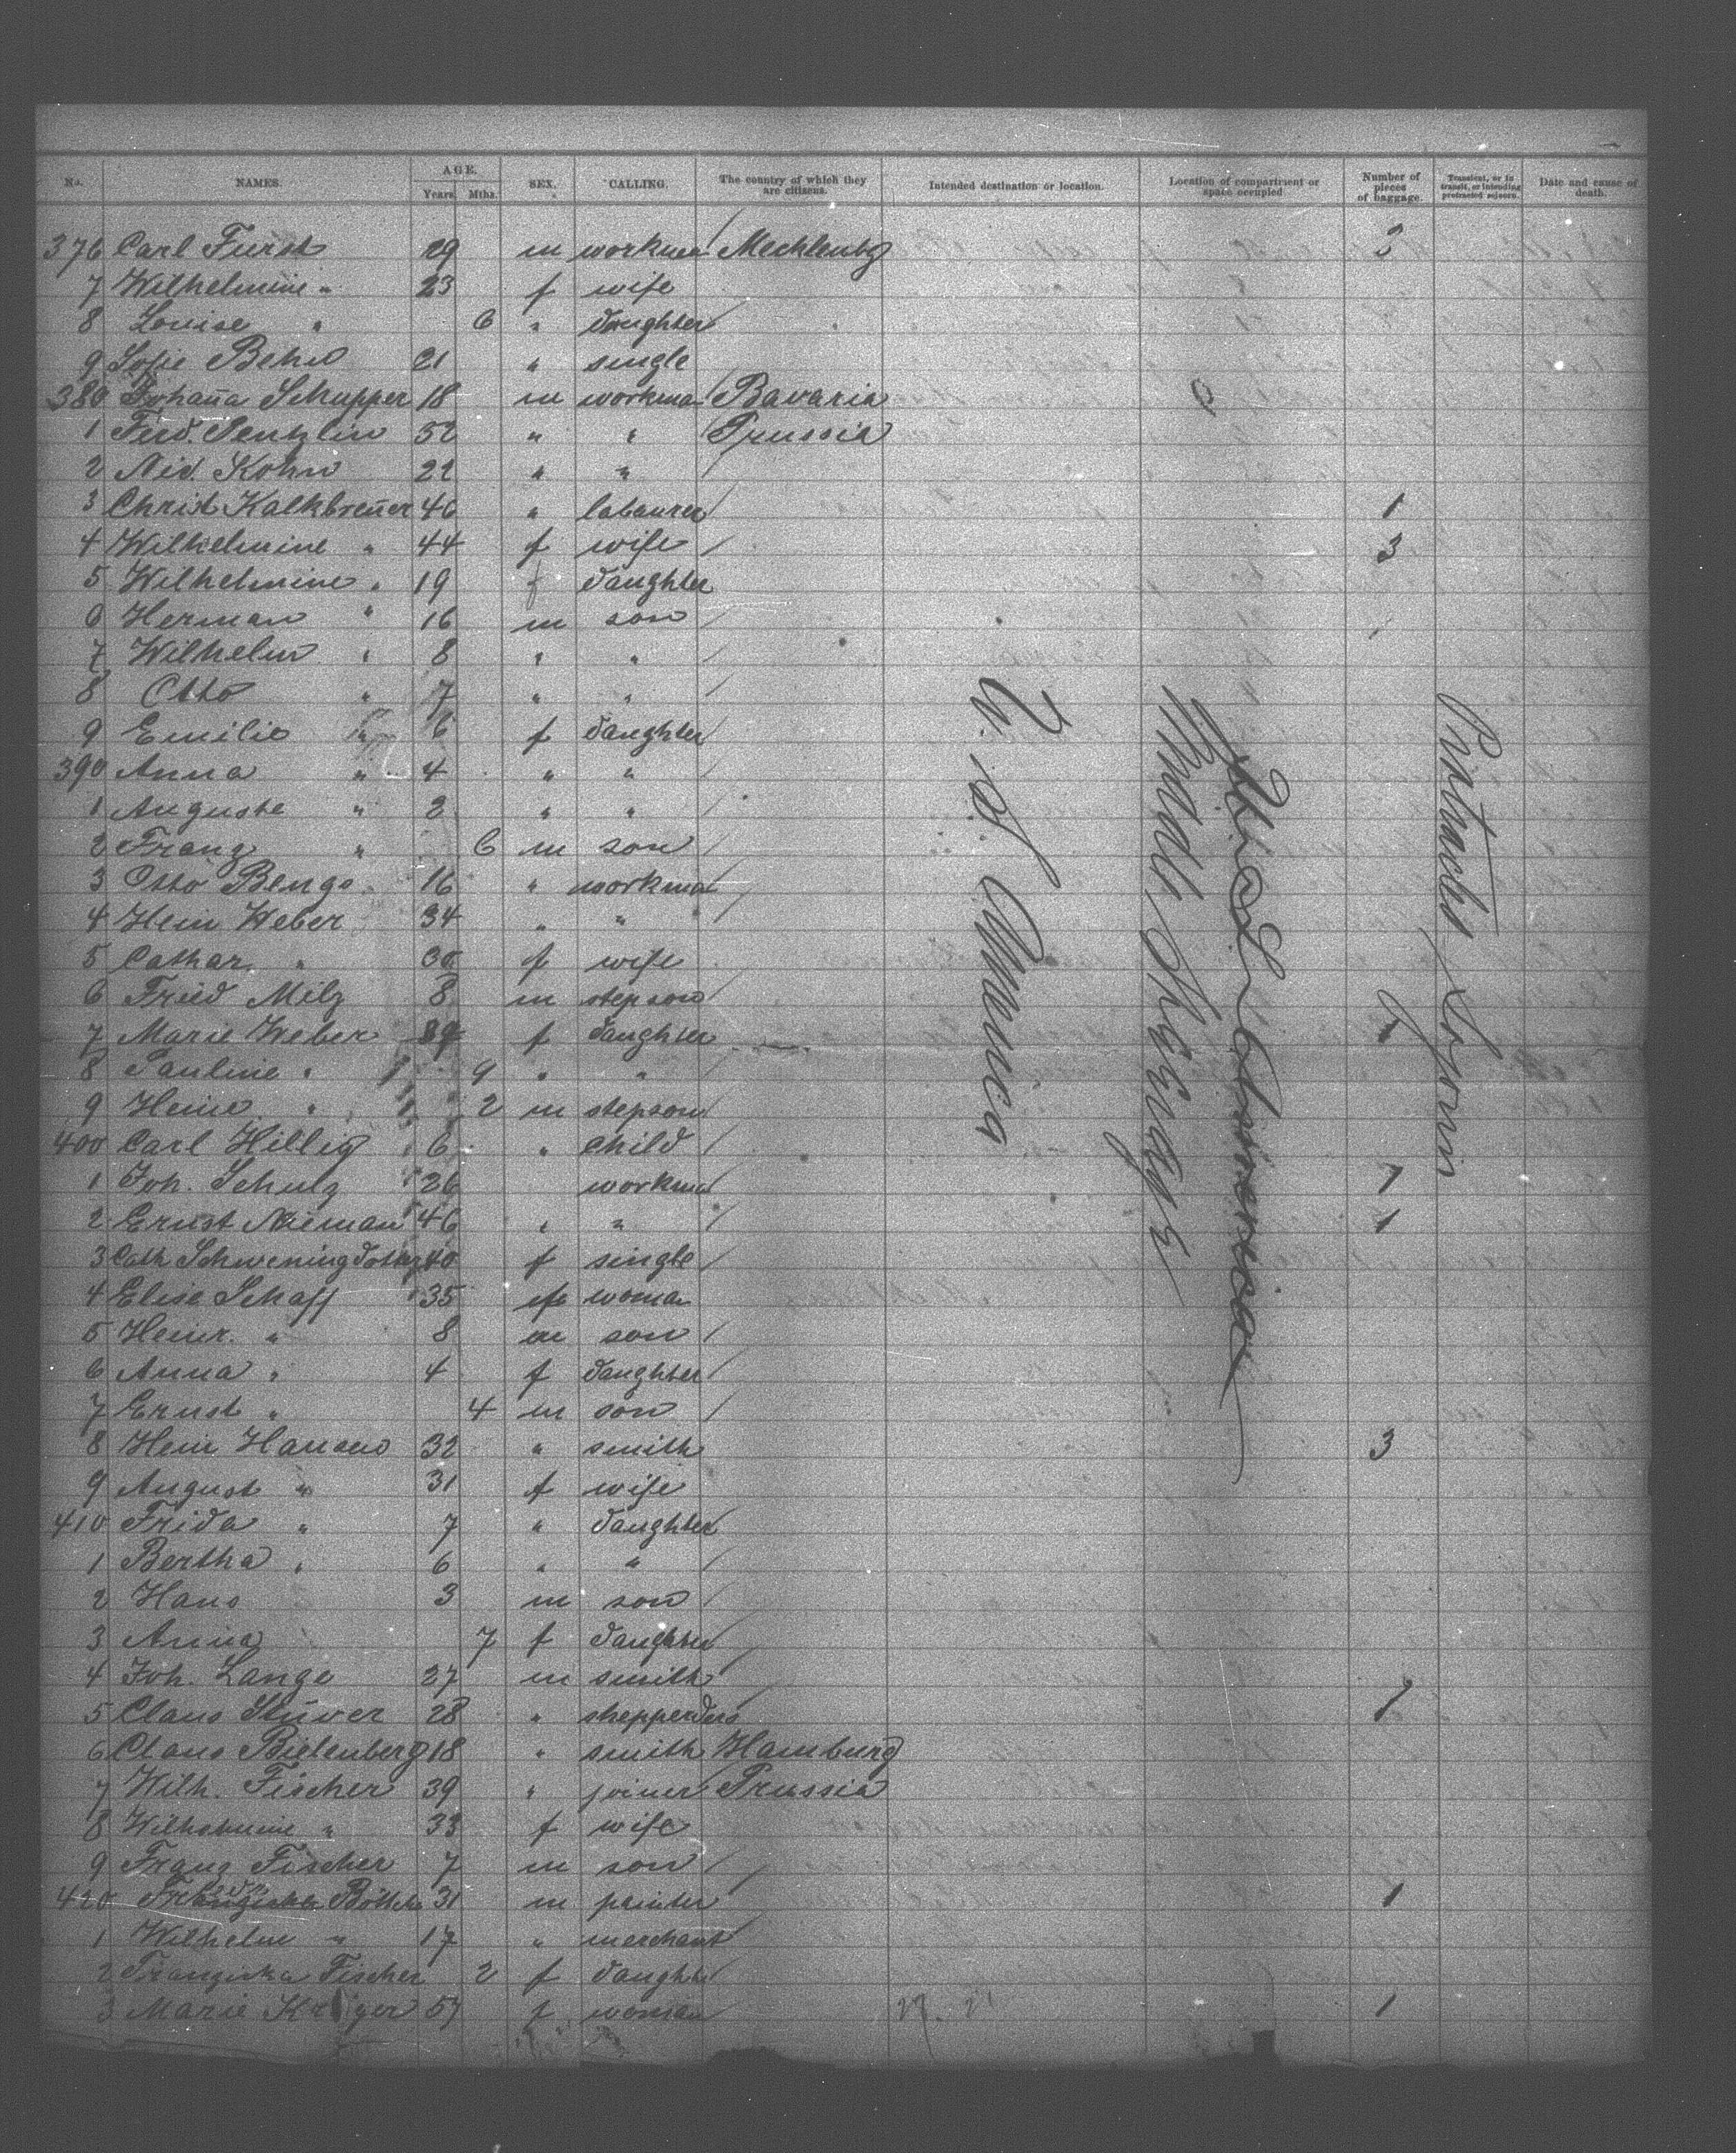 No. NAMES. AGE. Years Mths. SEX. CALLING. The country of which they are citizens. Intended destination or location. Location of compartment or space occupied Number of pieces of baggage. Transient, or in transit, or intending protracted sojourn. Date and cause of death.
376 Carl Furst 29 m workman Mecklenbg
7 Wilhelmine " 23 f wife
8 Louise " 6 " daughter
9 Sofie Behn 21 " single
380 Johana Schupper 18 m workman Bavaria
1 Ferd. Sentzlin 52 " " Prussia
2 Kohn " "
3 Christ Kalkbrener 46 " labourer 1
4 Wilhelmine " 44 f wife 3
5 Wilhelmine " 19 f daughter
6 Herman " 16 m son
7 Wilhelm " 8 " "
8 Otto " 7 " "
9 Emilie " 6 f daughter
390 Anna " 4 " "
1 Auguste " 2 " "
2 Franz " 6 m son
3 Otto Benge 16 " workman
4 Hein Weber 34 " "
5 Cathar. " 30 f wife
6 Fried Milz 8 m stepson
7 Marie Weber f daughter 1
8 Pauline " 9 " "
9 Heinr " 2 m stepson
400 Carl Hillig 6 " child
1 Joh. Schulz 26 workman 1
2 Ernst Nieman 46 " " 1
3 Cath 40 f single
4 Elise Schaff 35 f woman
5 Heinr. " 8 m son
6 Anna " 4 f daughter
7 Ernst " 4 m son
8 Hein Hansen 32 " smith 3
9 August " 31 f wife
410 Frida " 7 " daughter
1 Bertha " 6 " "
2 Hans 3 m son
3 Anna 7 f daughter
4 Joh. Lange 27 m smith
5 Claus Stüver 28 " shepperders 1
6 Claus Bielenberg 18 " smith Hamburg
7 Wilh. Fischer 39 " joiner Prussia
8 Wilhelmine " 33 f wife
9 Franz Fischer 7 m son
420 Franziska Böttcher 31 m painter 1
1 Wilhelm " 17 " merchant
2 Franziska Fischer 2 f daughter
3 Marie 57 f woman 1
U. S. America
Steerage
Protracted Sojourn